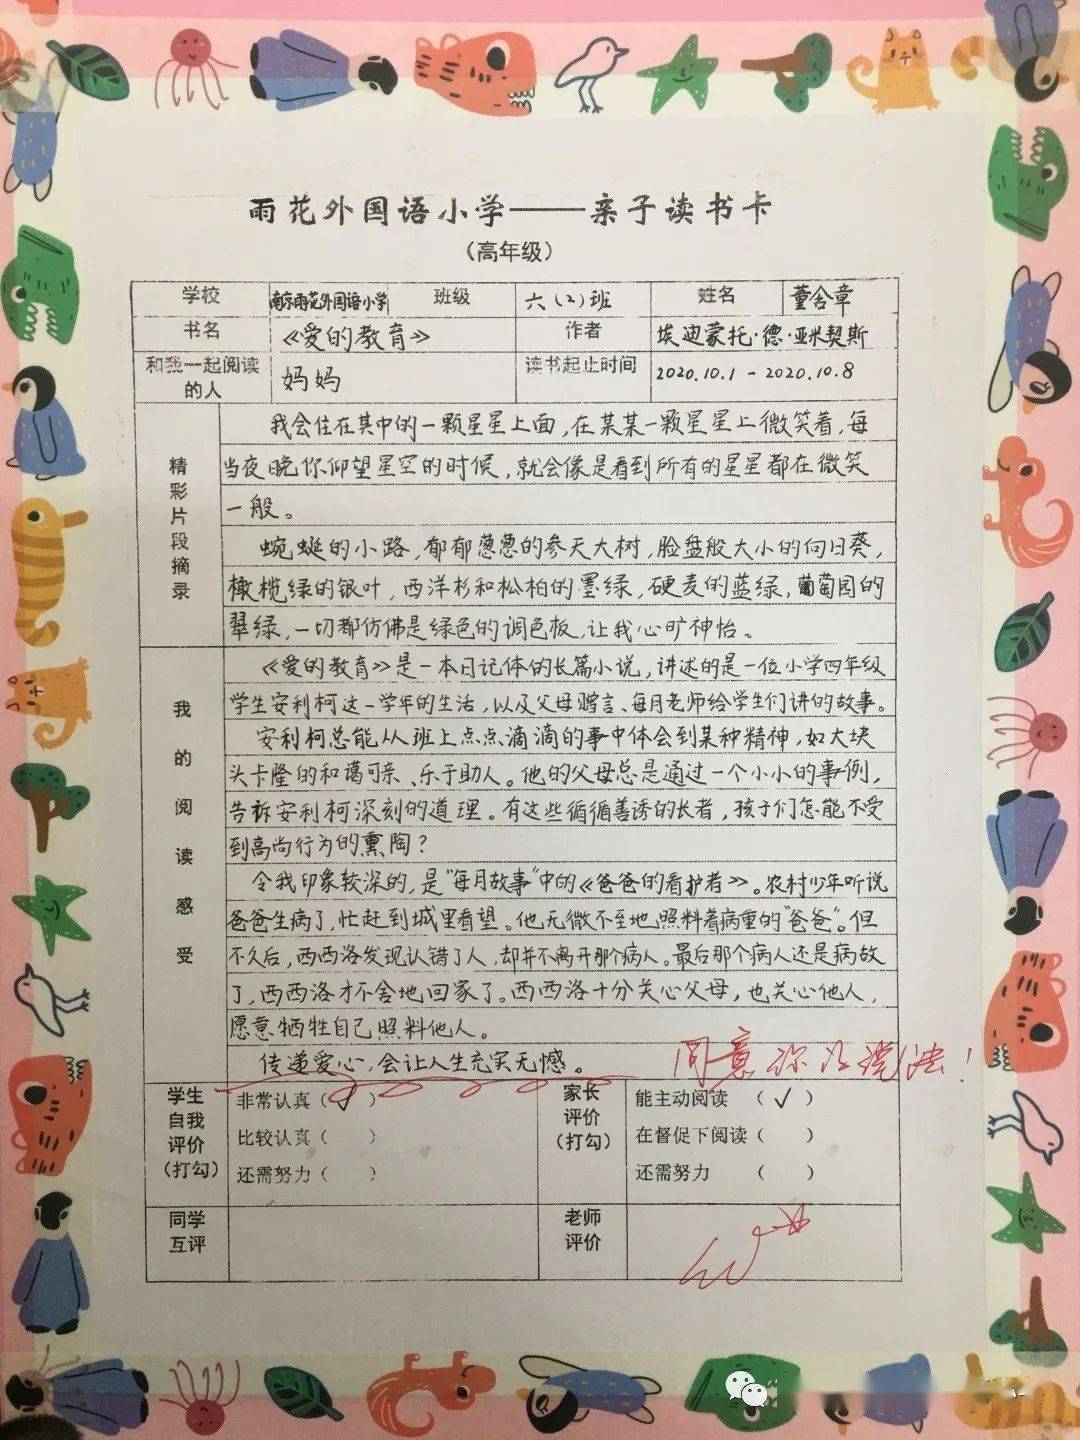 雨花外国语小学——亲子读书卡
（高年级）
学校 南京雨花外国语小学 班级 六（2）班 姓名 董含章
书名 《爱的教育》 作者 埃迪蒙托·德·亚米契斯
和我一起阅读的人 妈妈 读书起止时间 2020.10.1 - 2020.10.8
精彩片段摘录
我会住在其中的一颗星星上面，在某某一颗星星上微笑着，每
当夜晚你仰望星空的时候，就会像是看到所有的星星都在微笑
一般。
蜿蜒的小路，郁郁葱葱的参天大树，脸盘般大小的向日葵，
橄榄绿的银叶，西洋杉和松柏的墨绿，硬麦的蓝绿，葡萄园的
翠绿，一切都仿佛是绿色的调色板，让我心旷神怡。
我的阅读感受
《爱的教育》是一本日记体的长篇小说，讲述的是一位小学四年级
学生安利柯这一学年的生活，以及父母赠言、每月老师给学生们讲的故事。
安利柯总能从班上点点滴滴的事中体会到某种精神，如大块
头卡隆的和蔼可亲、乐于助人。他的父母总是通过一个小小的事例，
告诉安利柯深刻的道理。有这些循循善诱的长者，孩子们怎能不受
到高尚行为的熏陶？
令我印象较深的，是“每月故事”中的《爸爸的看护者》。农村少年听说
爸爸生病了，忙赶到城里看望。他无微不至地照料着病重的“爸爸”。但
不久后，西西洛发现认错了人，却并不离开那个病人。最后那个病人还是病故
了，西西洛才不舍地回家了。西西洛十分关心父母，也关心他人，
愿意牺牲自己照料他人。
传递爱心，会让人生充实无憾。 同意你的说法！
学生自我评价（打勾）
非常认真（✓）
比较认真（ ）
还需努力（ ）
家长评价（打勾）
能主动阅读（✓）
在督促下阅读（ ）
还需努力（ ）
同学互评
老师评价